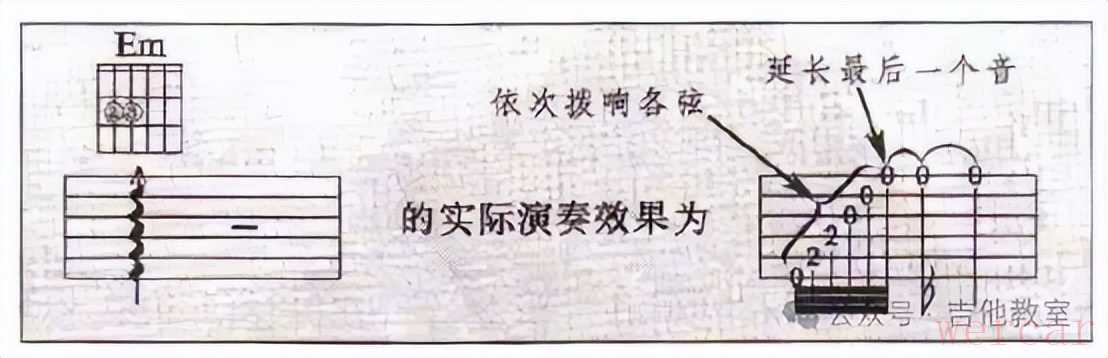 Em
②③
延长最后一个音
依次拨响各弦
的实际演奏效果为
0 2 2 0 0 0 0 0
公众号·吉他教室
weicar